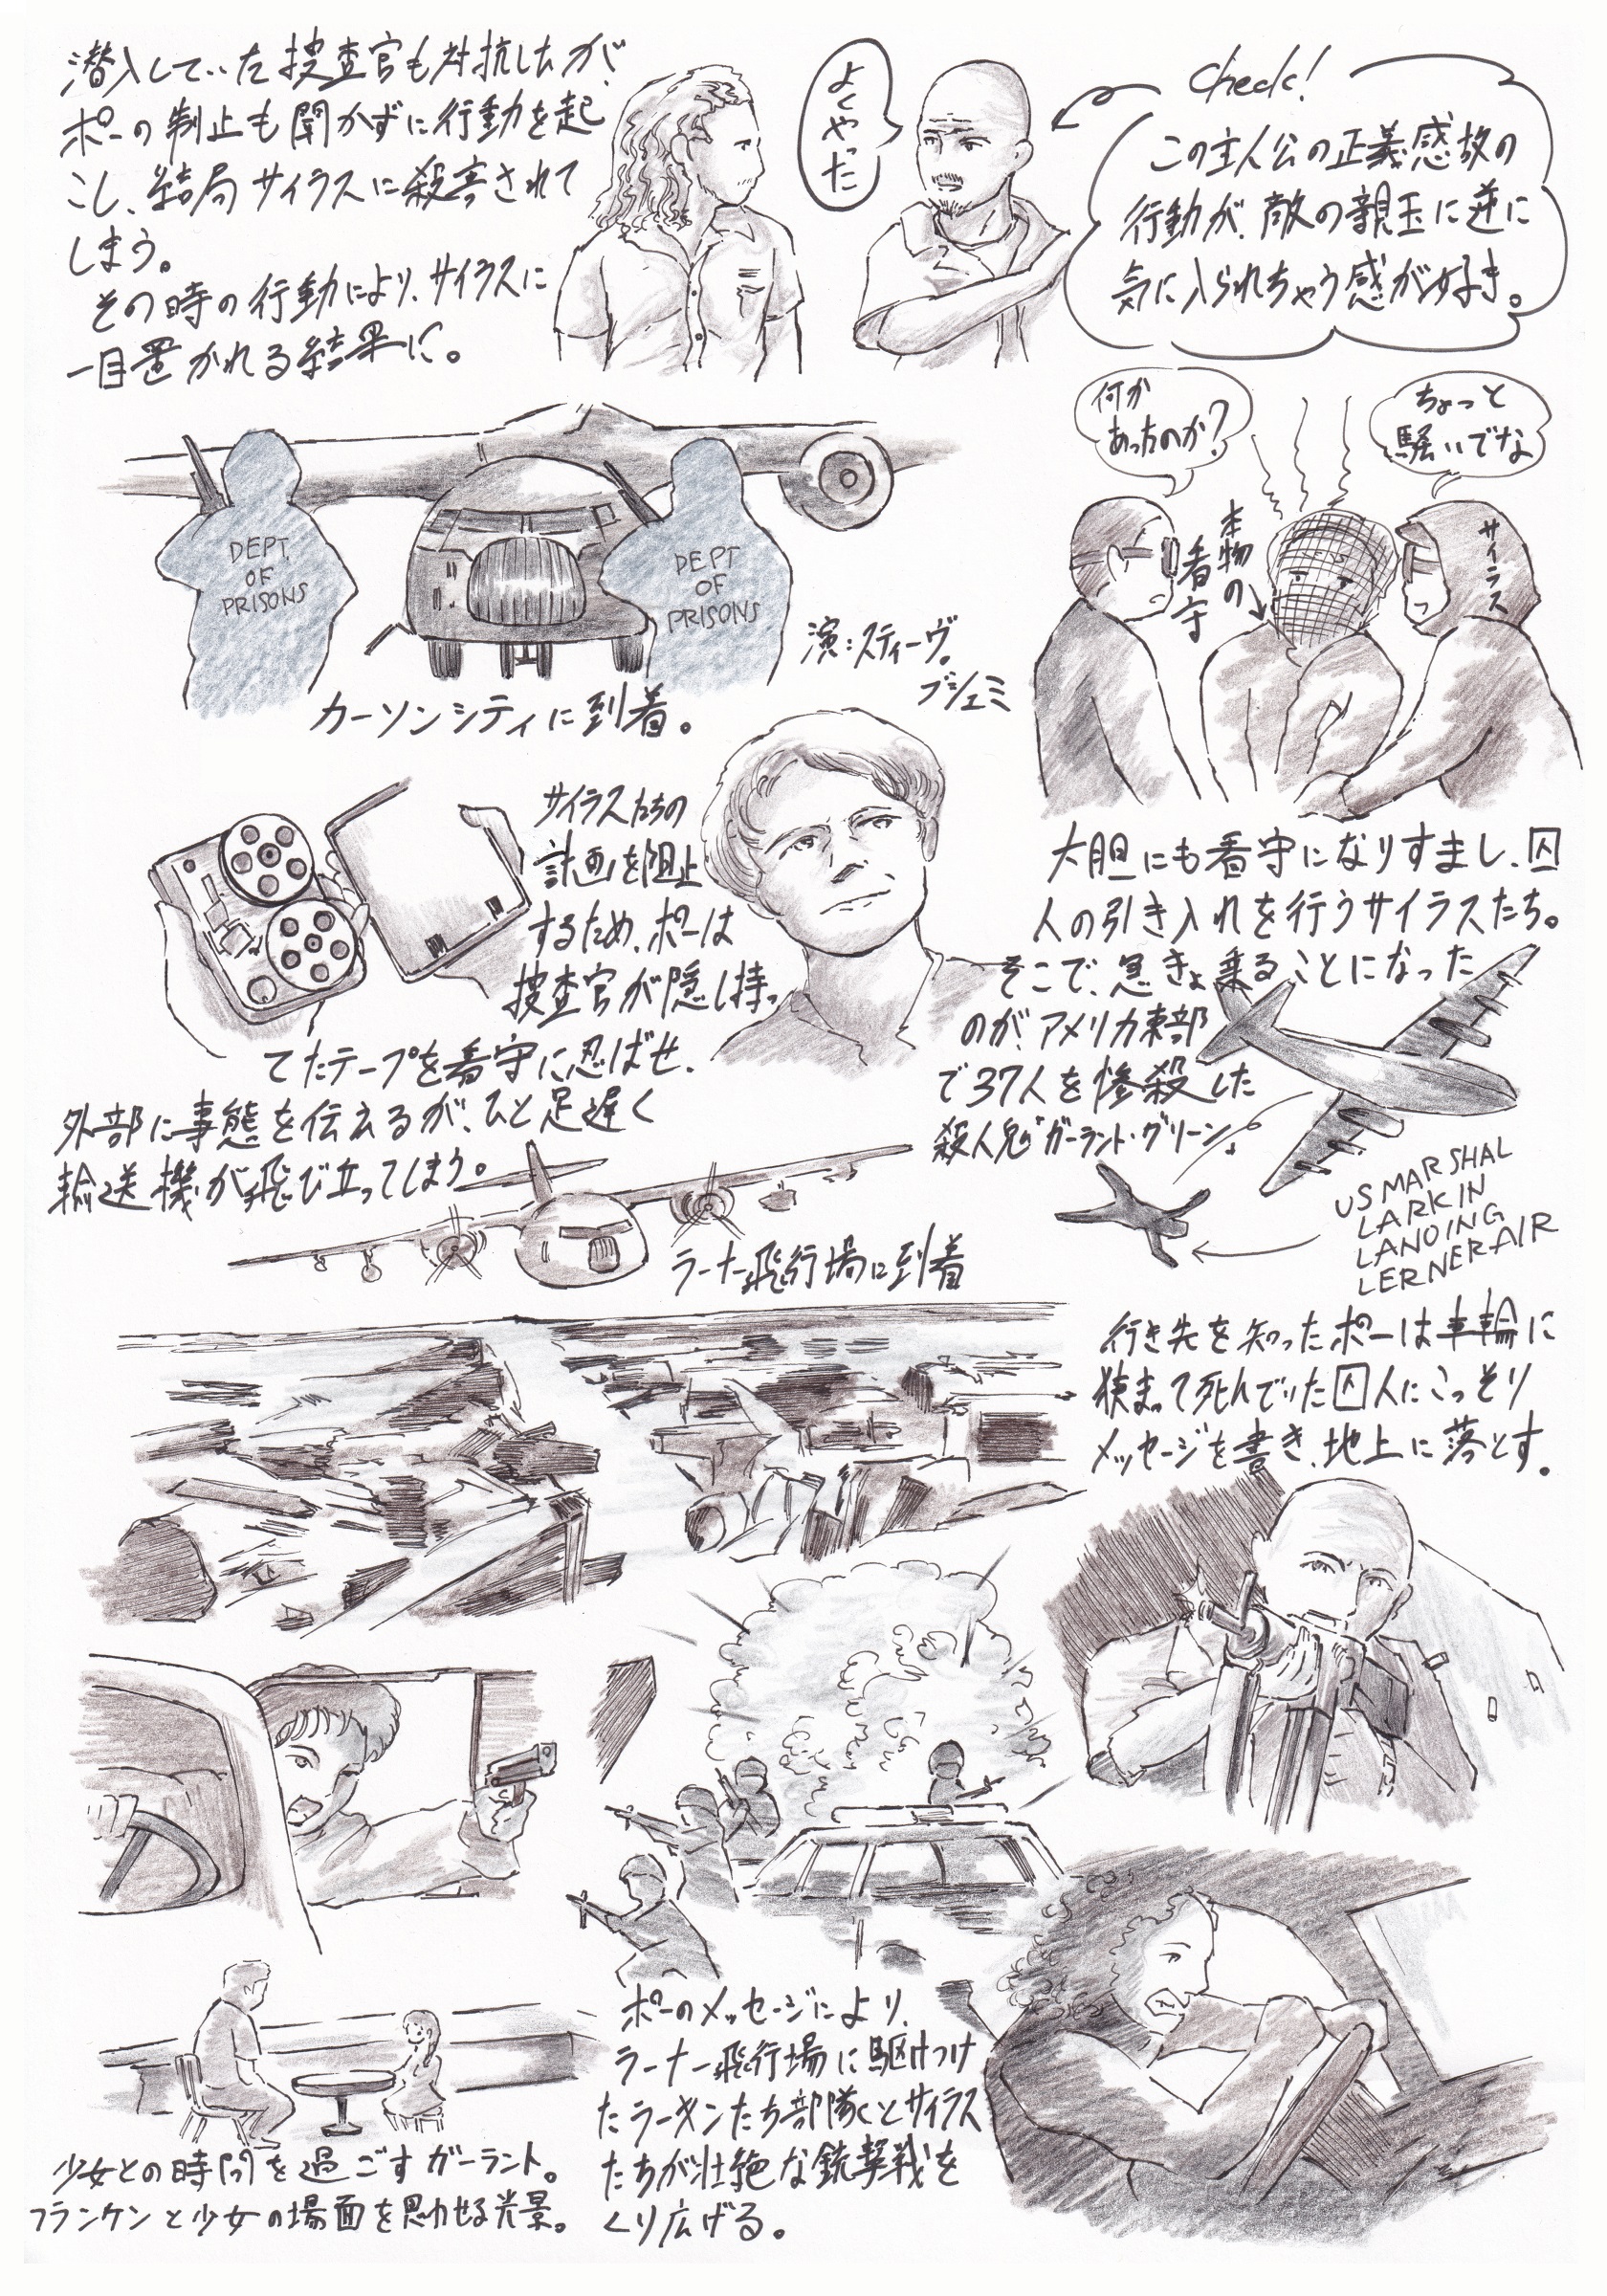 潜入していた捜査官も対抗したが、
ポーの制止も聞かずに行動を起
こし、結局サイラスに殺害されて
しまう。
その時の行動により、サイラスに
一目置かれる結果に。
よくやった
Check!
この主人公の正義感故の
行動が、敵の親玉に逆に
気に入られちゃう感が好き。
DEPT.
OF
PRISONS
DEPT
OF
PRISONS
カーソンシティに到着。
何か
あったのか?
ちょっと
騒いでな
本物の
看守
サイラス
演:スティーヴ・
ブシェミ
大胆にも看守になりすまし、囚
人の引き入れを行うサイラスたち。
そこで、急きょ乗ることになった
のが、アメリカ東部
で37人を惨殺した
殺人鬼“ガーラント・グリーン”。
サイラスたちの
計画を阻止
するため、ポーは
捜査官が隠し持っ
てたテープを看守に忍ばせ、
外部に事態を伝えるが、ひと足遅く
輸送機が飛び立ってしまう。
US MARSHAL
LARKIN
LANDING
LERNER AIR
ラーナー飛行場に到着
行き先を知ったポーは車輪に
挟まって死んでいた囚人にこっそり
メッセージを書き、地上に落とす。
ポーのメッセージにより、
ラーナー飛行場に駆けつけ
たラーキンたち部隊とサイラス
たちが壮絶な銃撃戦を
くり広げる。
少女との時間を過ごすガーラント。
フランケンと少女の場面を思わせる光景。